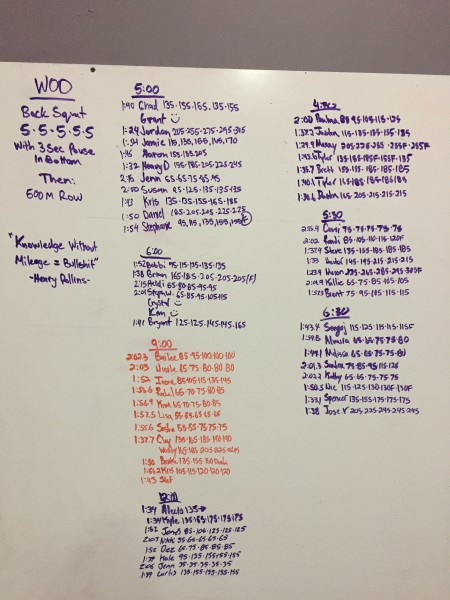 WOD
Back Squat
5-5-5-5-5
With 3 Sec Pause
In Bottom
Then:
500m Row
"Knowledge Without
Mileage = Bullshit"
-Henry Rollins-
5:00
1:40 Chad 135-155-165-135-155
Grant
1:24 Jordan 205-255-275-295-305
1:34 Jamie 115, 135, 155, 165, 170
1:45 Aaron 155, 185, 205
1:32 Henry D 155-185-205-225-245
2:15 Jenn 55-65-75-95-95
2:00 Susan 95-125-135-135-135
1:43 Kris 135-135-155-165-185
1:50 Daniel 165-205-205-225-225
1:54 Stephanie 95, 115, 135, 155, 155
6:00
1:52 Bobbi 95-115-125-135-135
1:38 Brian 165-185-205-205-205(F)
2:15 Heidi 65-80-85-95-95
2:01 Steph W. 65-85-95-105-115
Crystal
Kim
1:41 Bryant 125-125-145-145-165
9:00
2:02.3 Bailee 85-95-100-100-100
2:03 Nicole 65-75-80-80-80
1:52 Irene 85-105-115-135-145
1:55.6 65-70-75-80-85
1:56.9 Kim 65-70-75-80-85
1:57.5 Lisa 55-55-65-65-65
1:55.6 Sasha 55-55-75-75-75
1:37.7 Clay 135-165-185-190-190
165-185-205-205
1:50 135-155
Kris 105-115-120-120-120
1:43
12:00
1:34 Alecia 135
1:34 Kyle 135-155-175-175-175
1:52 James 85-105-125-125-125
2:03 Nikki 55-65-65-65-65
1:50 Dez 65-75-85-85-85
1:39 Hale 95-135-155-155-155
2:06 Jenn 35-35-35-35-35
1:39 Curtis 135-155-155-155-155
4:30
2:00 Paulina 80-95-105-115-125
1:37.7 Justin 115-185-185-155-185
1:29.4 Manny 205-225-255-255F-255F
1:43.5 Tyler 135-155-155-155F-135
1:35.7 Brett 155-155-185-185-185
1:40.1 Tyler 115-185-185-185-185
1:38.6 Dustin 165-205-215-215-215
5:30
2:15.4 75-75-75-75-75
2:02 85-105-110-115-120F
1:37.4 Steve 135-155-185-185-185
1:33 145-195-215-215-215
1:23.9 225-265-285-295-300F
2:19.9 Kallie 65-75-85-105-105
1:52.9 Brent 75-95-105-115-115
6:30
1:43.4 115-125-115-115-115F
65-65-75-75-80
1:49.1 Melissa 65-65-75-75-80
2:01.3 Sandra 75-85-95-115-125
2:02.2 Kathy 65-65-75-75-75
1:50.5 Nic 115-125-130-130F-130F
1:33.1 Spencer 135-155-175-175-175
1:38 Jose V 205-225-245-245-245